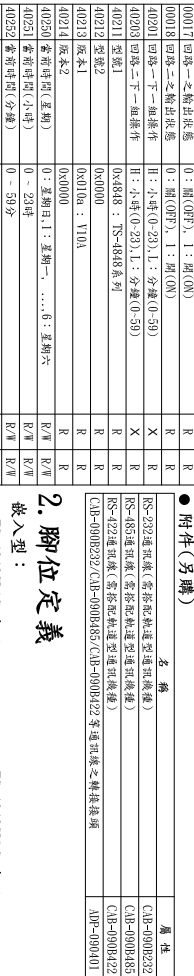 00017 回路一之輸出狀態 0：關(OFF), 1：開(ON) R R
00018 回路二之輸出狀態 0：關(OFF), 1：開(ON) R R
40201 回路一下一組操作 H：小時(0~23), L：分鐘(0~59) X R
40203 回路二下一組操作 H：小時(0~23), L：分鐘(0~59) X R
40211 型號1 0x4848：TS-4848系列 R R
40212 型號2 0x0000 R R
40213 版本1 0x010a：V10A R R
40214 版本2 0x0000 R R
40250 當前時間(星期) 0：星期日, 1：星期一, ..., 6：星期六 R/W R/W
40251 當前時間(小時) 0 ~ 23時 R/W R/W
40252 當前時間(分鐘) 0 ~ 59分 R/W R/W
● 附件(另購)
名 稱 屬 性
RS-232通訊線(需搭配軌道型通訊機種) CAB-090B232
RS-485通訊線(需搭配軌道型通訊機種) CAB-090B485
RS-422通訊線(需搭配軌道型通訊機種) CAB-090B422
CAB-090B232/CAB-090B485/CAB-090B422等通訊線之轉接接頭 ADP-090401
2. 腳位定義
嵌入型：